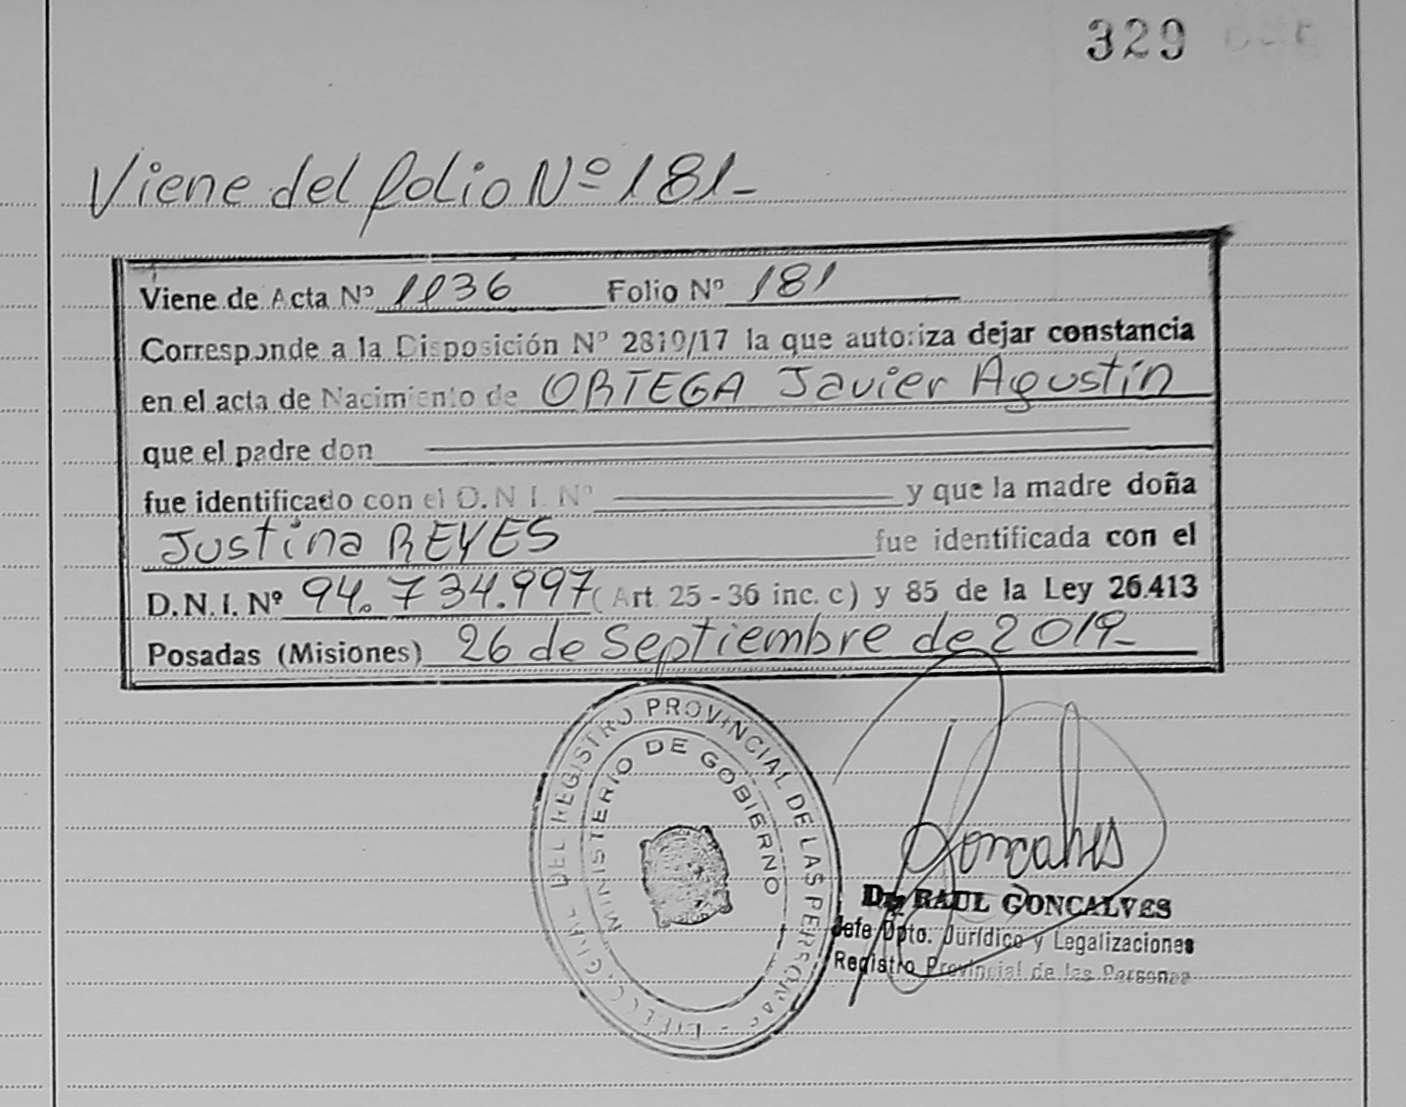 329
Viene del folio Nº 181-
Viene de Acta Nº 1136 Folio Nº 181
Corresponde a la Disposición Nº 2819/17 la que autoriza dejar constancia
en el acta de Nacimiento de ORTEGA Javier Agustín
que el padre don
fue identificado con el D.N.I. Nº y que la madre doña
Justina REYES fue identificada con el
D.N.I. Nº 94.734.997 (Art. 25 - 36 inc. c) y 85 de la Ley 26.413
Posadas (Misiones) 26 de Septiembre de 2019-
DEL REGISTRO PROVINCIAL DE LAS PERSONAS
MINISTERIO DE GOBIERNO
Goncalves
Dr. RAUL GONCALVES
Jefe Dpto. Jurídico y Legalizaciones
Registro Provincial de las Personas